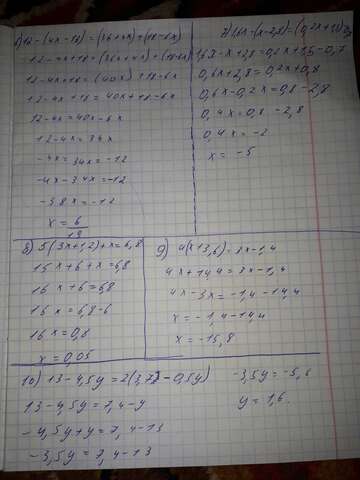 6) 12-(4x-18)=(36x+4x)+(18-6x)
12-4x+18=(36x+4x)+(18-6x)
12-4x+18=(40x)+18-6x
12-4x+18=40x+18-6x
12-4x=40x-6x
12-4x=34x
-4x=34x=-12
-4x-34x=-12
-38x=-12
x=6/19
7) 1,6x-(x-2,8)=(0,2x+1,5)-0,7
1,6x-x+2,8=0,2x+1,5-0,7
0,6x+2,8=0,2x+0,8
0,6x-0,2x=0,8-2,8
0,4x=0,8-2,8
0,4x=-2
x=-5
8) 5(3x+1,2)+x=6,8
15x+6+x=6,8
16x+6=6,8
16x=6,8-6
16x=0,8
x=0,05
9) 4(x+3,6)=3x-1,4
4x+14,4=3x-1,4
4x-3x=-1,4-14,4
x=-1,4-14,4
x=-15,8
10) 13-4,5y=2(3,7-0,5y)
13-4,5y=7,4-y
-4,5y+y=7,4-13
-3,5y=7,4-13
-3,5y=-5,6
y=1,6